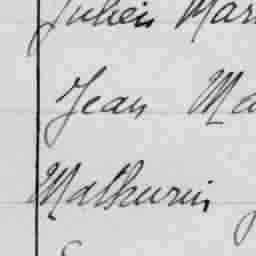 Julien Mar
Jean Ma
Mathurin